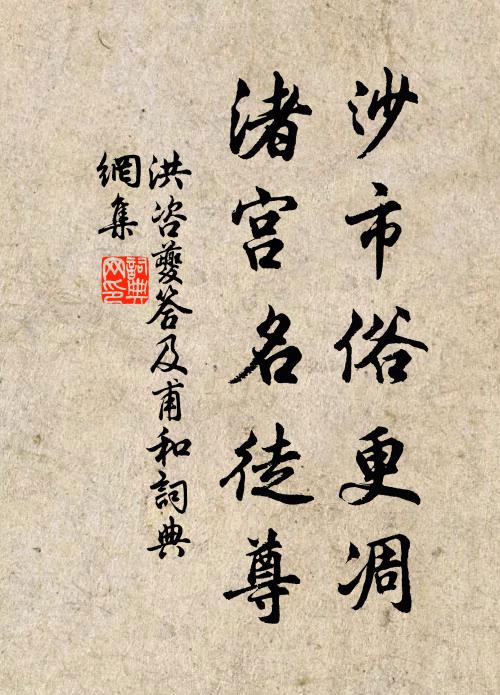 沙市俗更凋
渚宫名徒尊
洪咨夔答及甫和詞典
網集
詞典
网印